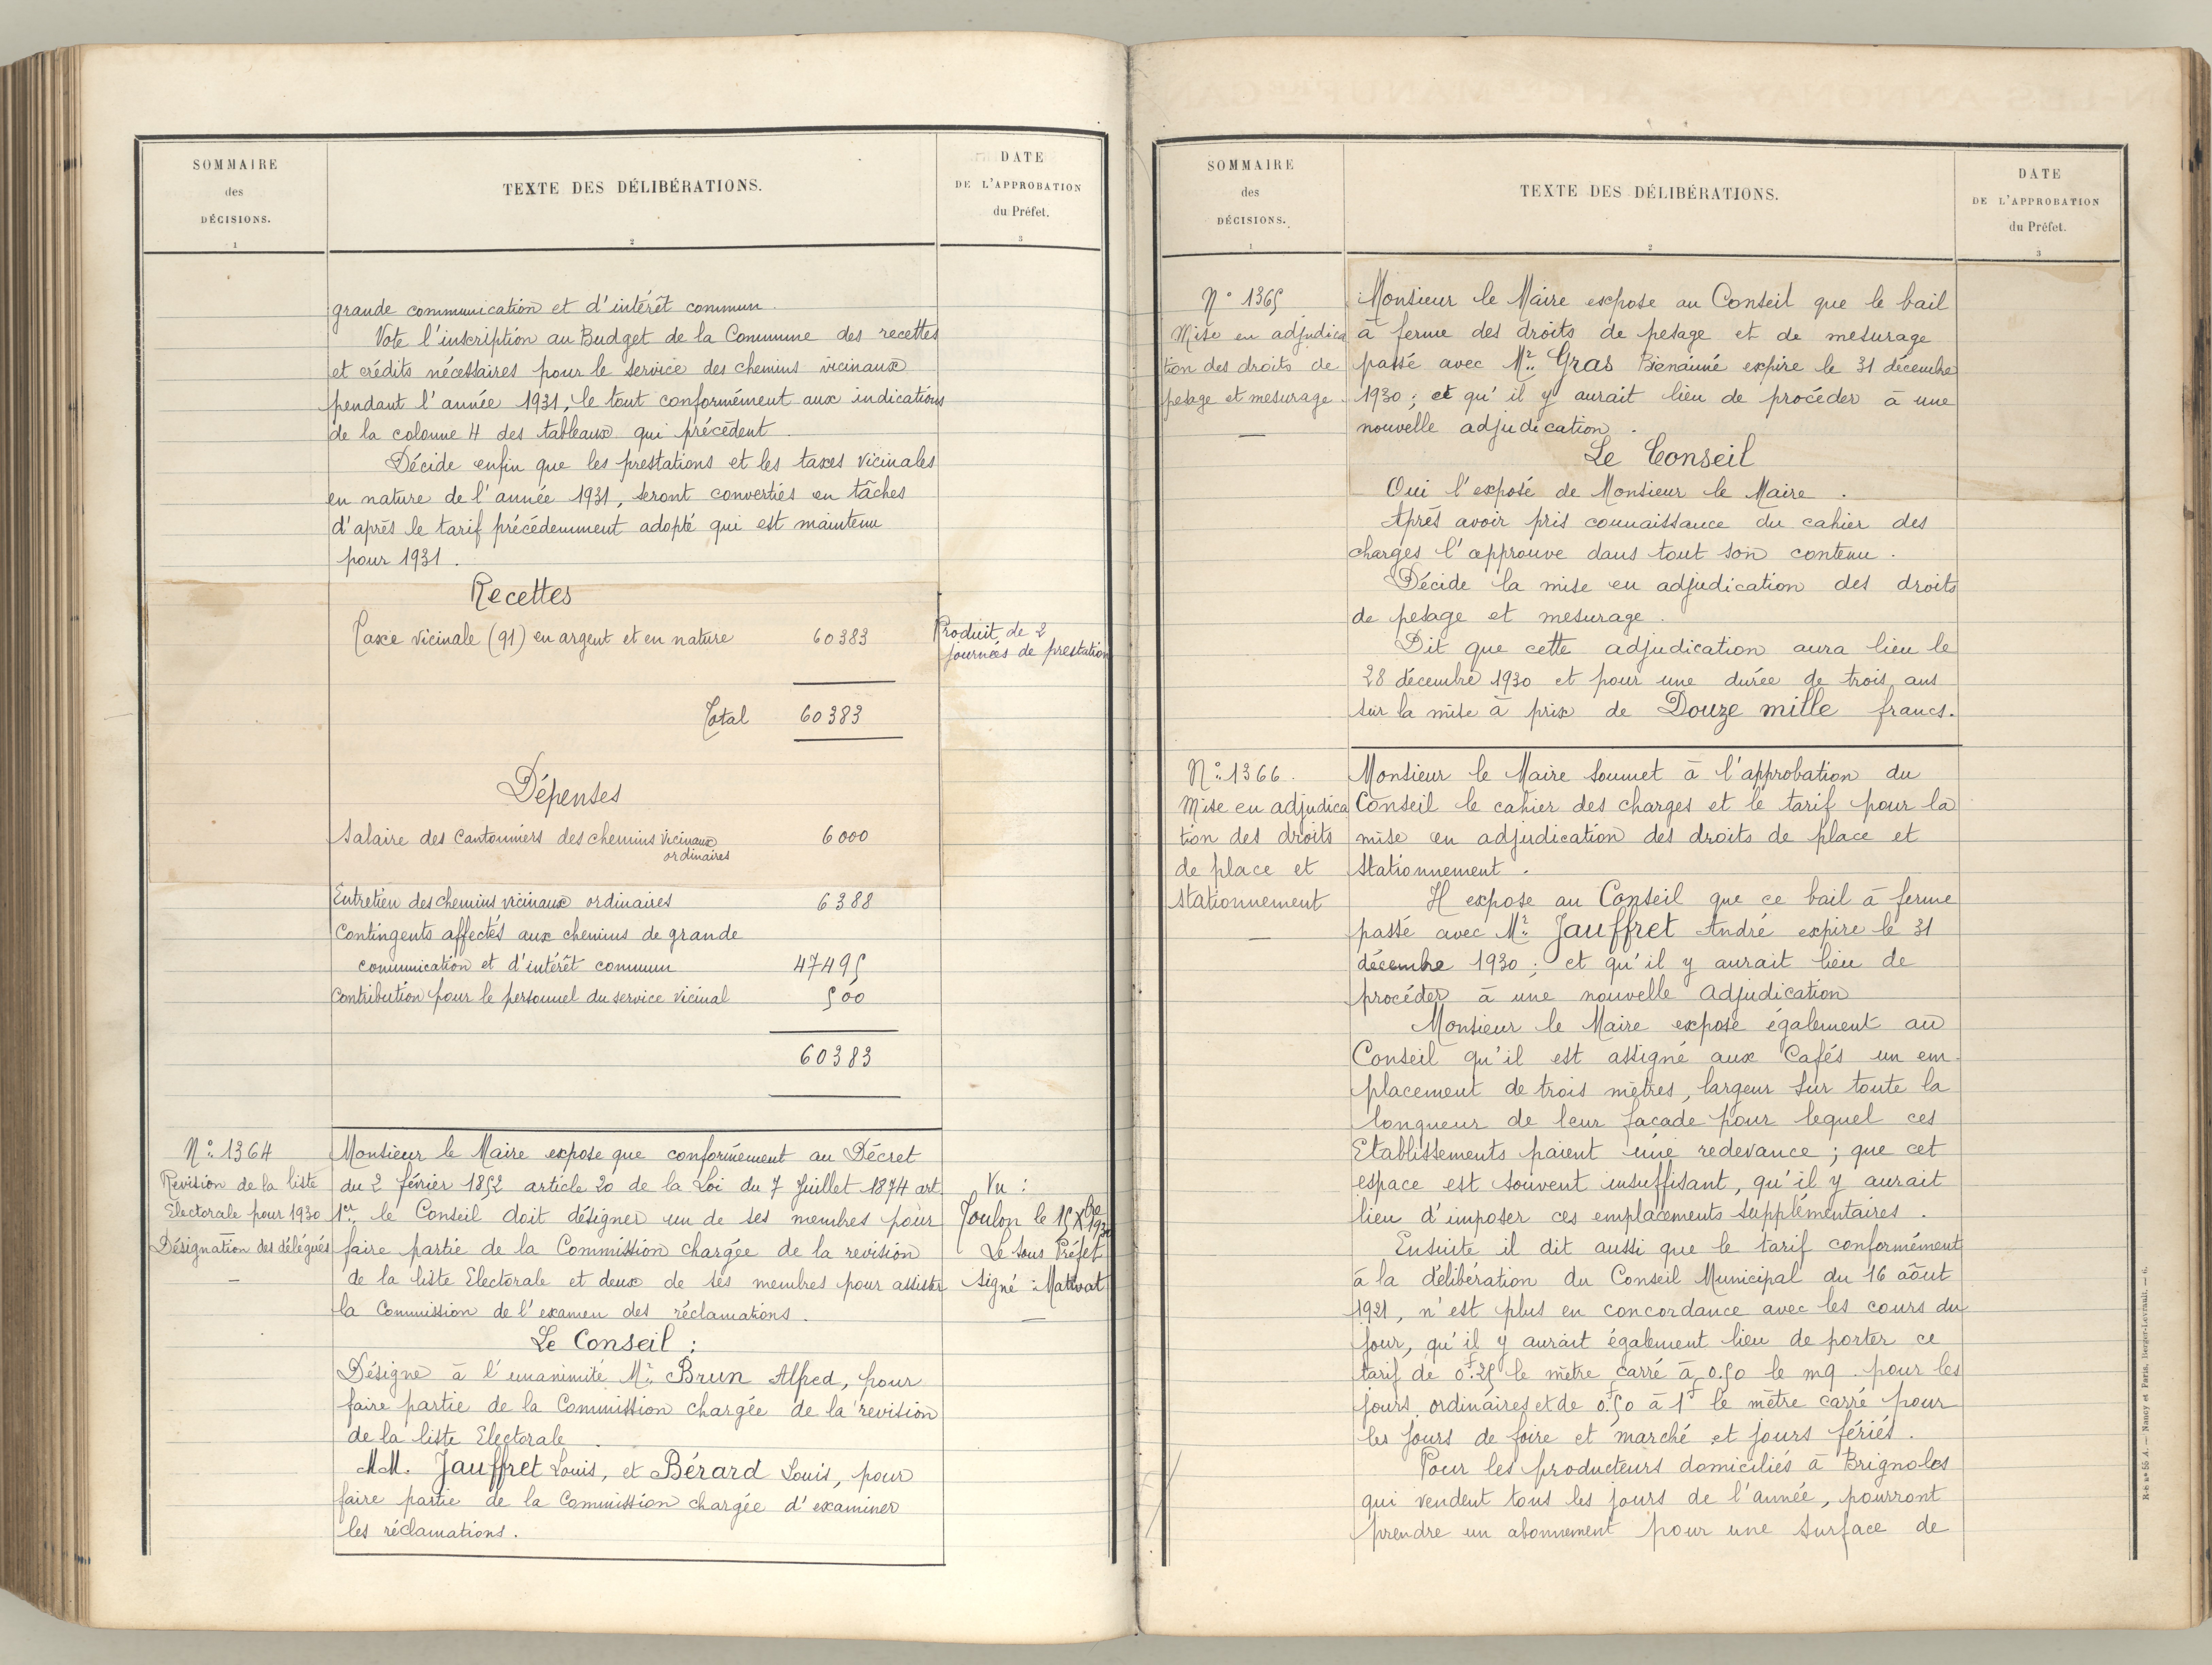 SOMMAIRE
des
DÉCISIONS.
1
TEXTE DES DÉLIBÉRATIONS.
2
DATE
DE L'APPROBATION
du Préfet.
3
grande communication et d'intérêt commun.
Vote l'inscription au Budget de la Commune des recettes
et crédits nécessaires pour le service des chemins vicinaux
pendant l'année 1931, le tout conformément aux indications
de la colonne 4 des tableaux qui précèdent.
Décide enfin que les prestations et les taxes vicinales
en nature de l'année 1931, seront converties en tâches
d'après le tarif précédemment adopté qui est maintenu
pour 1931.
Recettes
Taxe vicinale (91) en argent et en nature 60383
Produit de 2
journées de prestation
Total 60383
Dépenses
Salaire des Cantonniers des chemins vicinaux 6000
ordinaires
Entretien des chemins vicinaux ordinaires 6388
Contingents affectés aux chemins de grande
communication et d'intérêt commun 47495
Contribution pour le personnel du service vicinal 500
60383
N° 1364
Révision de la liste
Electorale pour 1930
Désignation des délégués
—
Monsieur le Maire expose que conformément au Décret
du 2 février 1852 article 20 de la Loi du 7 Juillet 1874 art
1er, le Conseil doit désigner un de ses membres pour
faire partie de la Commission chargée de la revision
de la liste Electorale et deux de ses membres pour assister
la Commission de l'examen des réclamations.
Le Conseil :
Désigne à l'unanimité Mr Brun Alfred, pour
faire partie de la Commission chargée de la revision
de la liste Electorale.
MM. Jauffret Louis, et Bérard Louis, pour
faire partie de la Commission chargée d'examiner
les réclamations.
Vu :
Toulon le 15 Xbre 1930
Le Sous Préfet
signé :
—
SOMMAIRE
des
DÉCISIONS.
1
TEXTE DES DÉLIBÉRATIONS.
2
DATE
DE L'APPROBATION
du Préfet.
3
N° 1365
Mise en adjudica
tion des droits de
pesage et mesurage.
—
Monsieur le Maire expose au Conseil que le bail
à ferme des droits de pesage et de mesurage
passé avec Mr Gras Bienaimé expire le 31 décembre
1930 ; et qu'il y aurait lieu de procéder à une
nouvelle adjudication.
Le Conseil
Oui l'exposé de Monsieur le Maire.
Après avoir pris connaissance du cahier des
charges l'approuve dans tout son contenu.
Décide la mise en adjudication des droits
de pesage et mesurage.
Dit que cette adjudication aura lieu le
28 décembre 1930 et pour une durée de trois ans
sur la mise à prix de Douze mille francs.
N° 1366.
Mise en adjudica
tion des droits
de place et
Stationnement
—
Monsieur le Maire soumet à l'approbation du
Conseil le cahier des charges et le tarif pour la
mise en adjudication des droits de place et
Stationnement.
Il expose au Conseil que ce bail à ferme
passé avec Mr Jauffret André expire le 31
décembre 1930 ; et qu'il y aurait lieu de
procéder à une nouvelle adjudication
Monsieur le Maire expose également au
Conseil qu'il est assigné aux Cafés un em-
placement de trois mètres, largeur sur toute la
longueur de leur facade pour lequel ces
Etablissements paient une redevance ; que cet
espace est souvent insuffisant, qu'il y aurait
lieu d'imposer ces emplacements supplémentaires.
Ensuite il dit aussi que le tarif conformément
à la délibération du Conseil Municipal du 16 aôut
1921, n'est plus en concordance avec les cours du
jour, qu'il y aurait également lieu de porter ce
tarif de 0f.25 le mètre carré à 0.50 le mq. pour les
jours ordinaires et de 0f.50 à 1f le mètre carré pour
les jours de foire et marché et jours fériés.
Pour les producteurs domiciliés à Brignoles
qui vendent tous les jours de l'année, pourront
prendre un abonnement pour une surface de
R-h n° 55 A. — Nancy et Paris, Berger-Levrault. — 6.